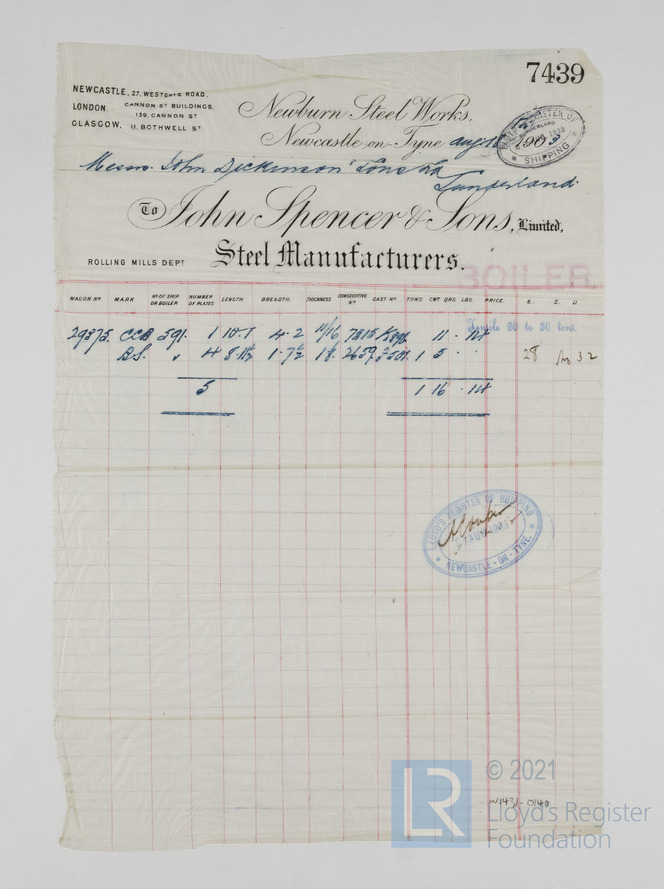 7439
NEWCASTLE, 27, WESTGATE ROAD,
LONDON CANNON ST BUILDINGS,
139, CANNON ST
GLASGOW, 11, BOTHWELL ST
Newburn Steel Works,
Newcastle on Tyne Aug 190
SHIPPING
Messrs. John Dickinson & Sons Ld
Sunderland.
To John Spencer & Sons, Limited,
Steel Manufacturers.
ROLLING MILLS DEPT
BOILER.
WAGON No MARK No OF SHIP OR BOILER NUMBER OF PLATES LENGTH. BREADTH. THICKNESS CONSECUTIVE No CAST No TONS. CWT QRS. LBS. PRICE. £. S. D.
Tensile 26 to 30 tons.
29375. CCB 591. 1 10.1 4.2 11/16 11 . 14
B.S. " 4 8.11½ 1.7½ 2659 1 5 . . 28 32
5 1 16 . 14
LLOYD'S REGISTER OF SHIPPING
NEWCASTLE-ON-TYNE.
W1431-0140
LR © 2021
Lloyd's Register
Foundation